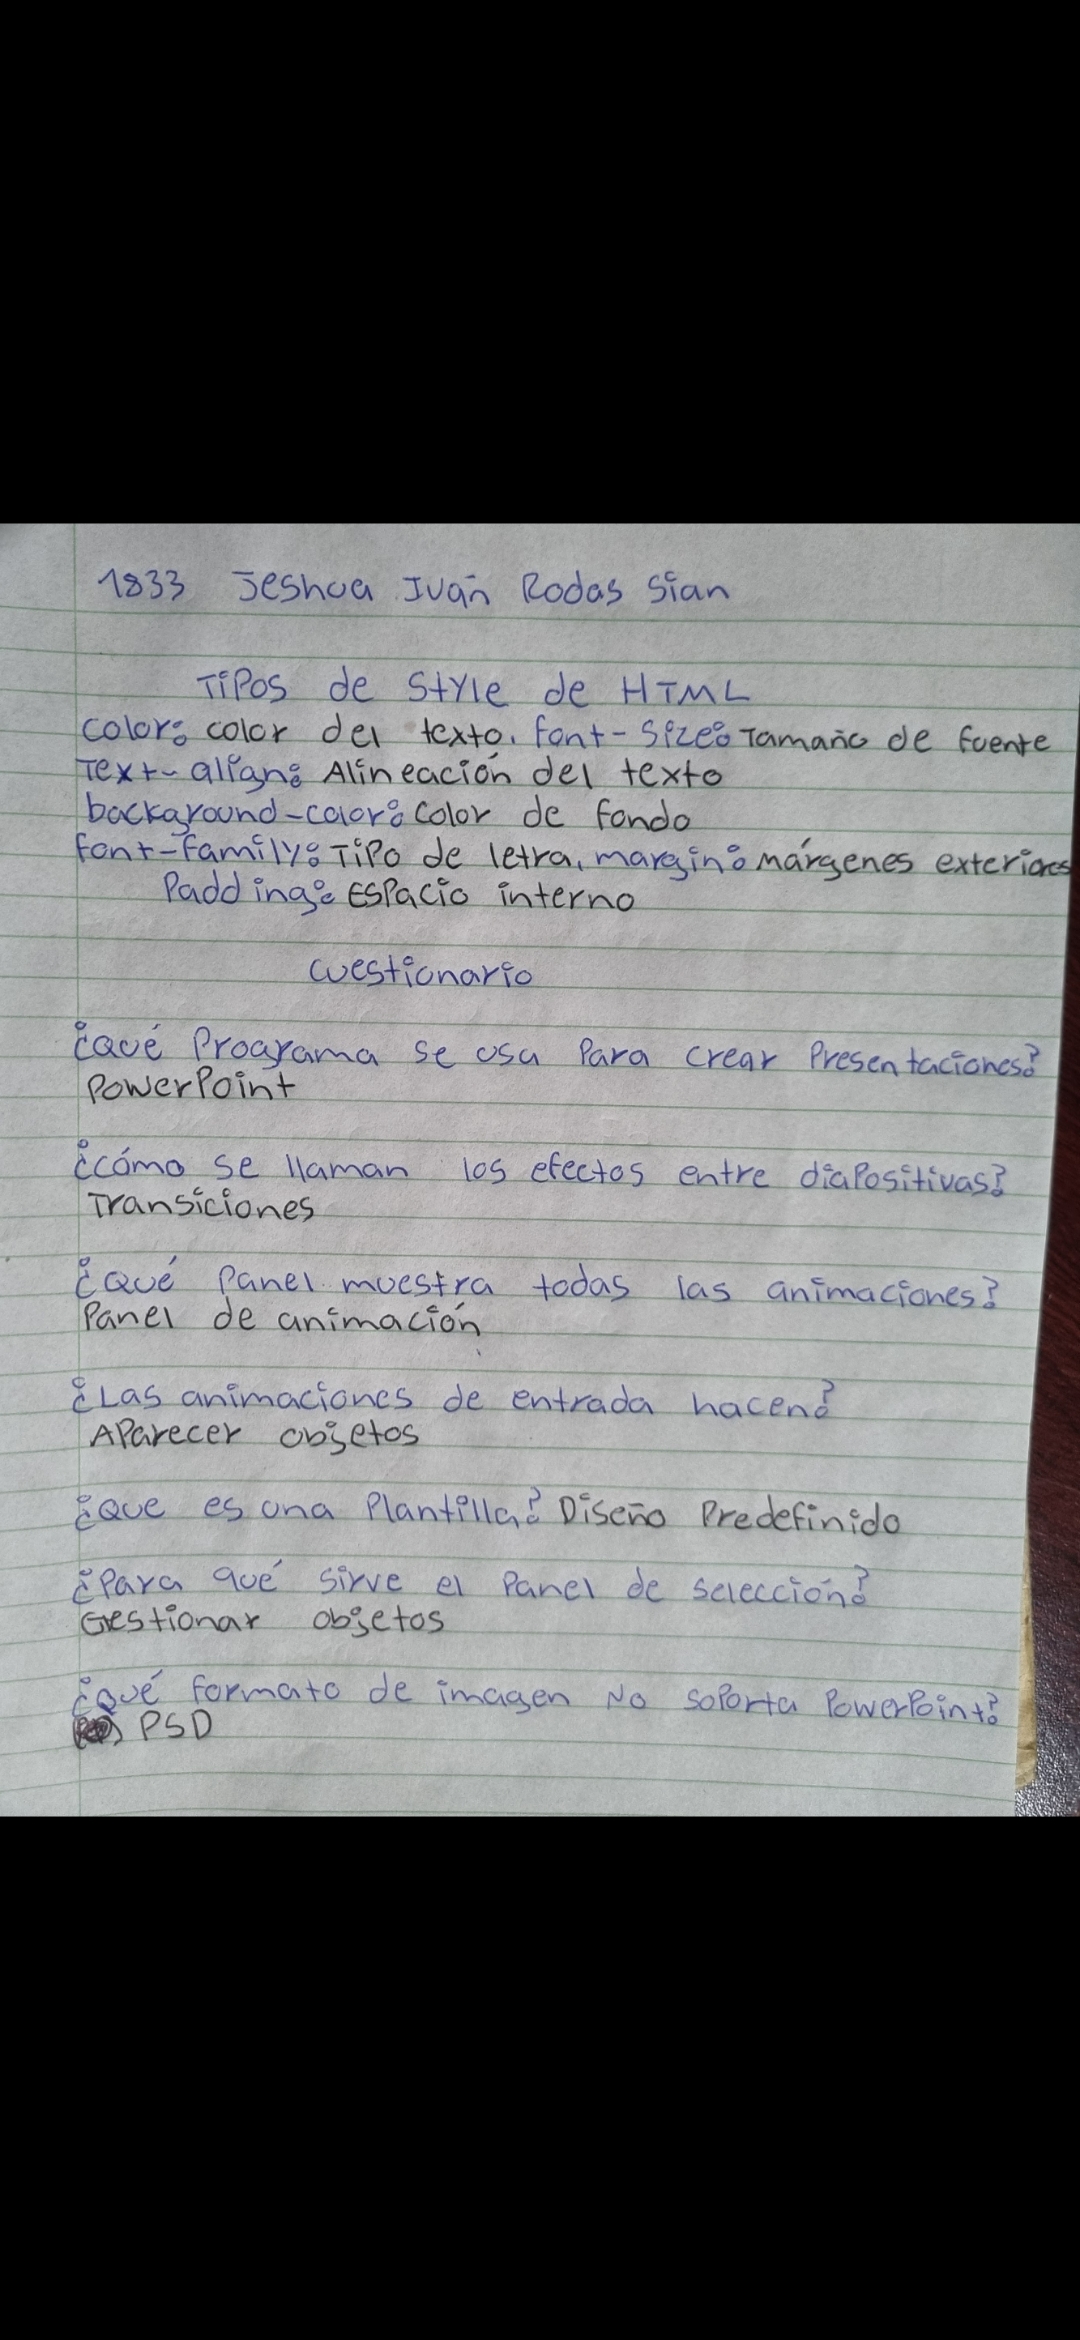 1833 Jeshua Iván Rodas Sian
Tipos de Style de HTML
color: color del texto. font-size: Tamaño de fuente
Text-align: Alineación del texto
background-color: color de fondo
font-family: Tipo de letra, margin: márgenes exteriores
Padding: Espacio interno
Cuestionario
¿Qué Programa se usa Para crear Presentaciones?
PowerPoint
¿cómo se llaman los efectos entre diaPositivas?
Transiciones
¿Qué Panel muestra todas las animaciones?
Panel de animación
¿Las animaciones de entrada hacen?
AParecer objetos
¿Que es una Plantilla? Diseño Predefinido
¿Para qué sirve el Panel de selección?
Gestionar objetos
¿Qué formato de imagen No soPorta PowerPoint?
PSD